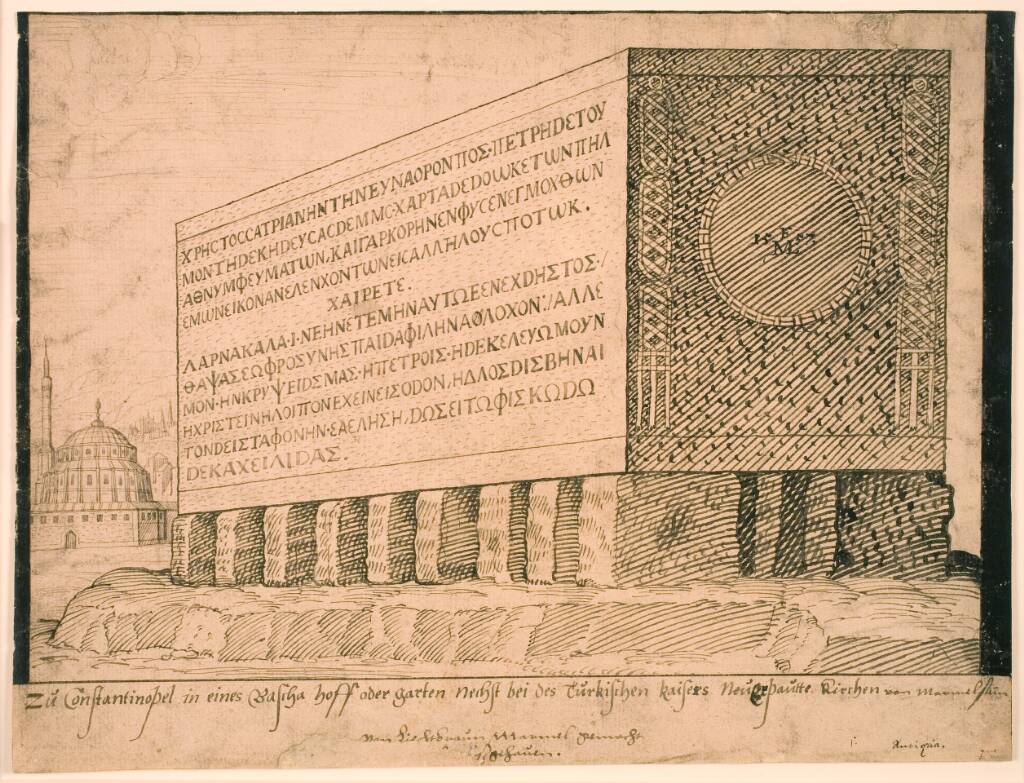 ΧΡΗСΤΟССΑΤΡΙΑΝΗΝΤΗΝΕΥΝΑΟΡΟΝΠΟΣ·ΠΕΤΡΗΔΕΤΟΥ
ΜΟΝΤΗΔΕΚΗΔΕΥСΑСΔΕΜΜС·ΧΑΡΤΑΔΕΔΟѠΚΕΤѠΝΠΗΛ
ΑΘΝΥΜΦΕΥΜΑΤѠΝ, ΚΑΙΓΑΡΚΟΡΗΝΕΝΦΥСΕΝΕΓΜΟΧΘѠΝ
ΕΜѠΝΕΙΚΟΝΑΝΕΛΕΝΧΟΝΤѠΝΕΚΑΛΛΗΛΟΥСΠΟΤѠΚ.
ΧΑΙΡΕΤΕ.
ΛΑΡΝΑΚΑΛΑ·Ι·ΝΕΗΝΕΤΕΜΗΝΑΥΤѠΕΕΝΕΧΔΗΣΤΟΣ·/
ΘΑΨΑΣΕѠΦΡΟΣΥΝΗΣΠΑΙΔΑΦΙΛΗΝΑΘΛΟΧΟΝ:/ΑΛΛΕ
ΜΟΝ·ΗΝΚΡΥΨΕΙΔΣΜΑΣ·ΗΠΕΤΡΟΙΣ·ΗΔΕΚΕΛΕΥѠΜΟΥΝ
ΗΧΡΙΣΤΕΙΝΗΛΟΙΠΟΝΕΧΕΙΝΕΙΣΟΔΟΝ, ΗΔΛΟΣDΙΣΒΗΝΑΙ
ΤΟΝDΕΙΣΤΑΦΟΝΗΝ·ΕΑΕΛΗΣΗ, DѠΣΕΙΤѠΦΙΣΚѠDѠ
DΕΚΑΧΕΙΛΙDΑΣ.
15 F 57
ML
Zu Constantinopel in eines Bascha hoff oder garten nechst bei des Türkischen kaisers Neugepautte Kirchen von
von Marmel gemacht
Antiqua.